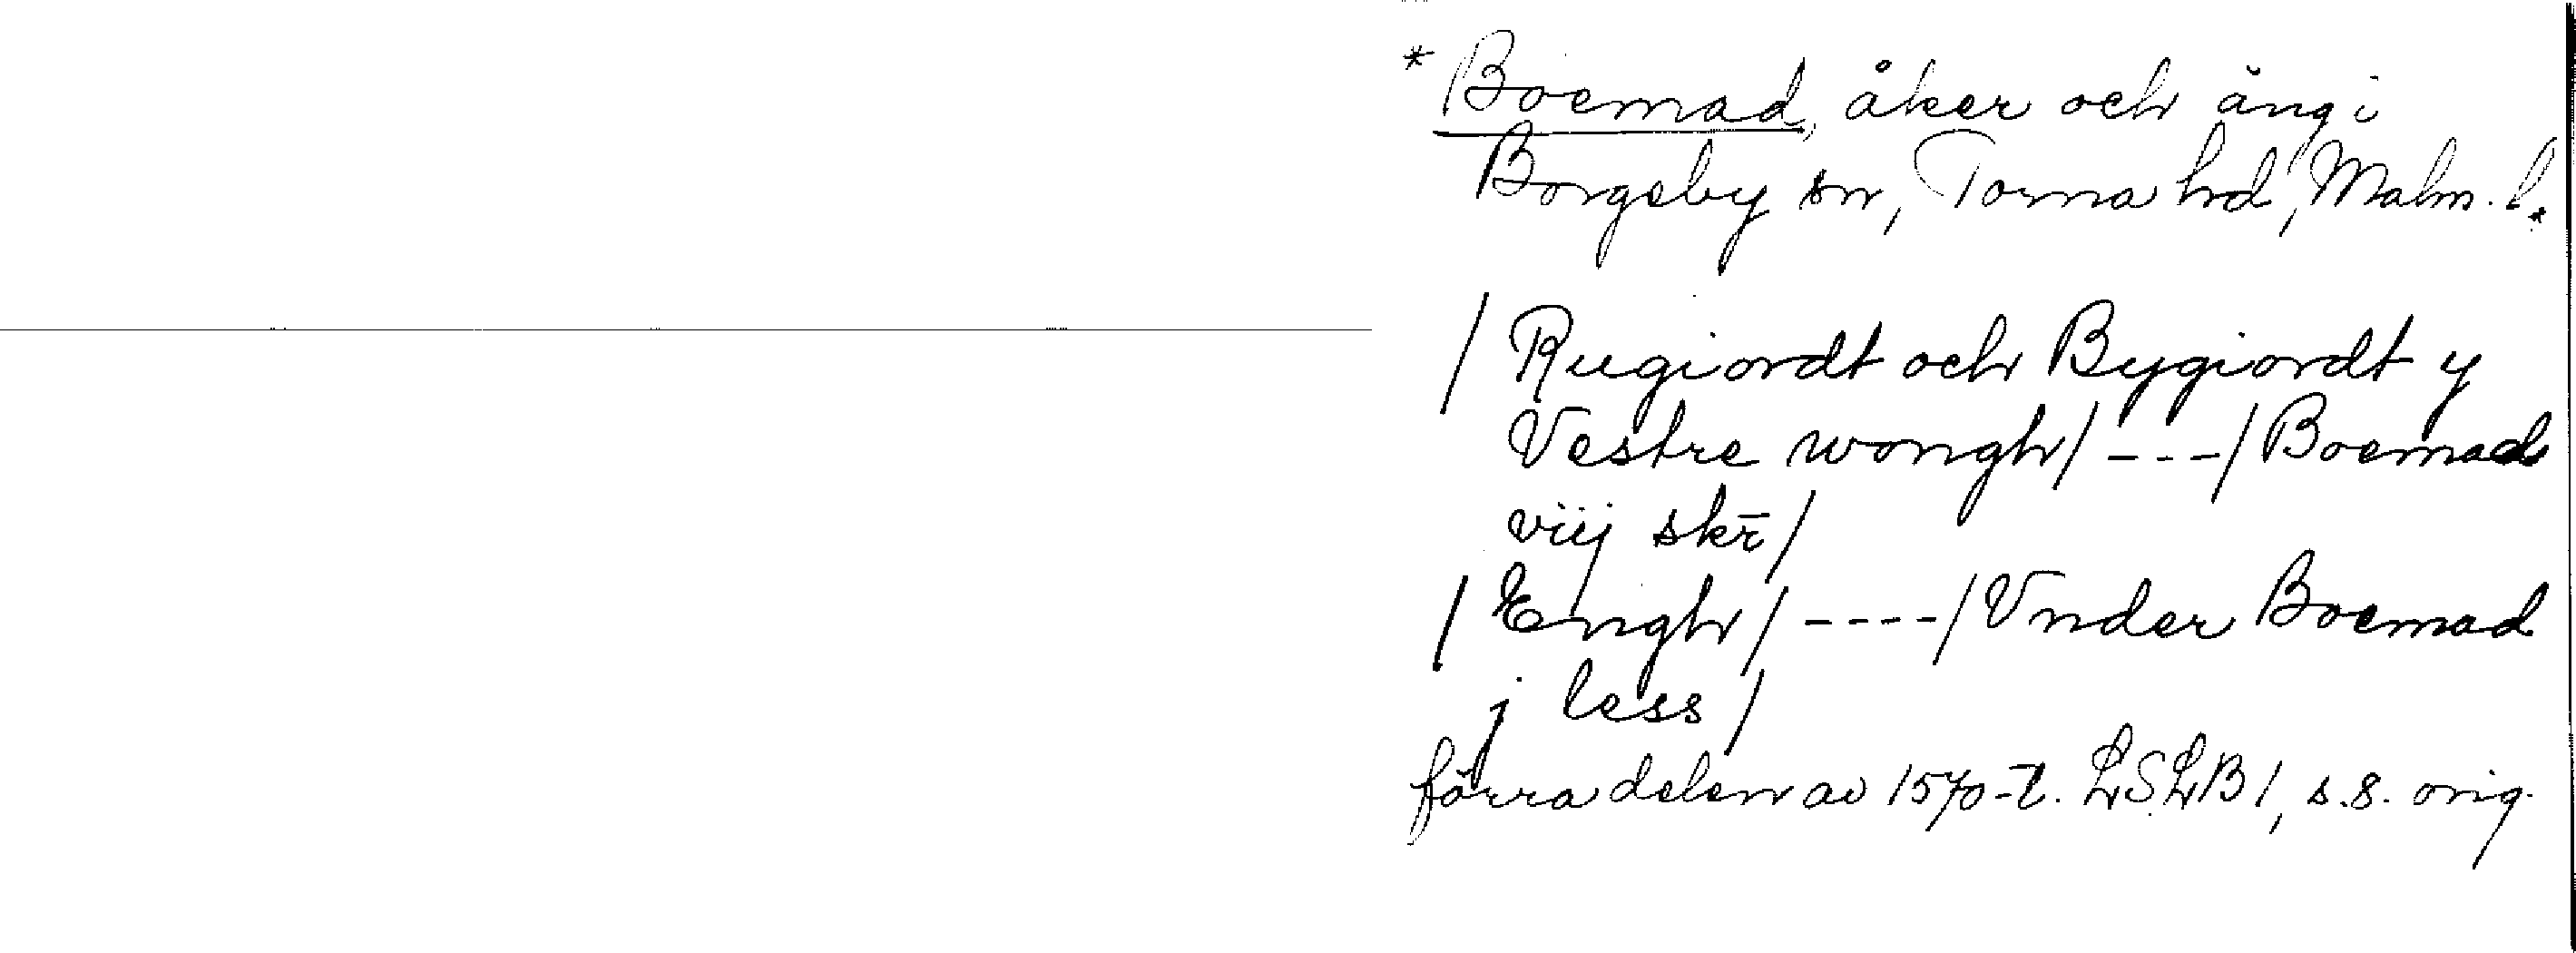 * Boemad, åker och äng i
Borgeby sn, Torna hd, Malm. l.
/ Rugiordt och Bygiordt y
Vestre wongh / - - - / Boemad
viij skr̄ /
/ Engh / - - - - / Vnder Boemad
j less /
förra delen av 1570-t. LSLB 1, s. 8. orig.